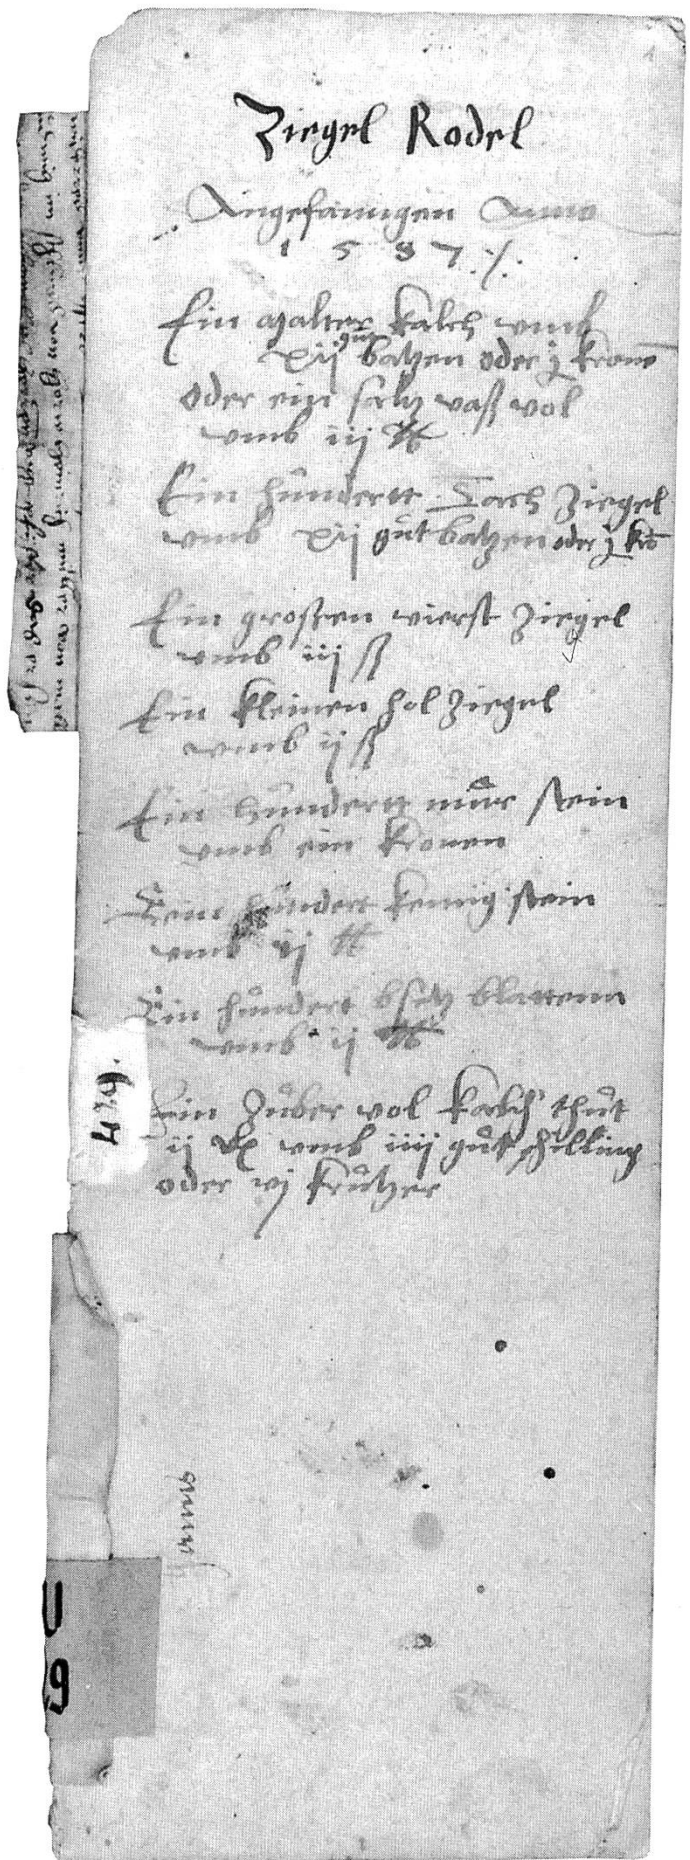 Ziegel Rodel
Angefanngen Anno
1 5 8 7 ·/.
Ein malter kalch umb
xij gut batzen oder j krone
oder ein saltz vaß vol
umb iij ℔
Ein hundertt Tach Ziegel
umb xij gůt batzen oder j kro
Ein großen vierst Ziegel
umb iij ß
Ein kleinen hol Ziegel
umb ij ß
Ein hundertt můr stein
umb ein kronen
Ein hundert kemig stein
umb ij ℔
Ein hundert bsetz blattenn
umb ij ℔
Ein Zůber vol kalch thůt
ij umb iiij gůt schilling
oder vj krützer
479.
U
9